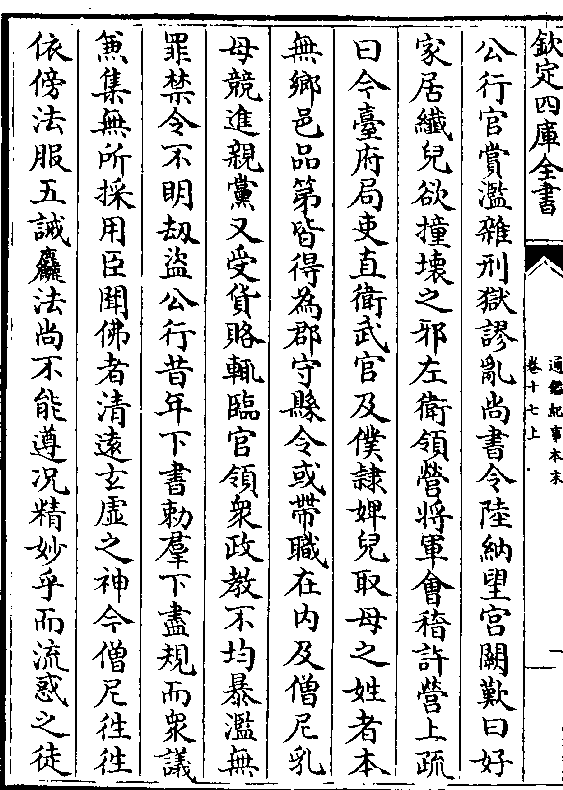 欽定四庫全書
通鑑紀事本末
卷十七上
一
公行官賞濫雜刑獄謬亂尚書令陸納望宫闕歎曰好
家居纎兒欲撞壞之邪左衛領營將軍會稽許營上疏
曰今臺府局吏直衛武官及僕隷婢兒取母之姓者本
無鄉邑品第皆得為郡守縣令或帶職在内及僧尼乳
母競進親黨又受貨賂輒臨官領衆政教不均暴濫無
罪禁令不明刼盜公行昔年下書勅羣下盡規而衆議
兼集無所採用臣聞佛者清遠玄虛之神今僧尼徃徃
依傍法服五誡麤法尚不能遵况精妙乎而流惑之徒